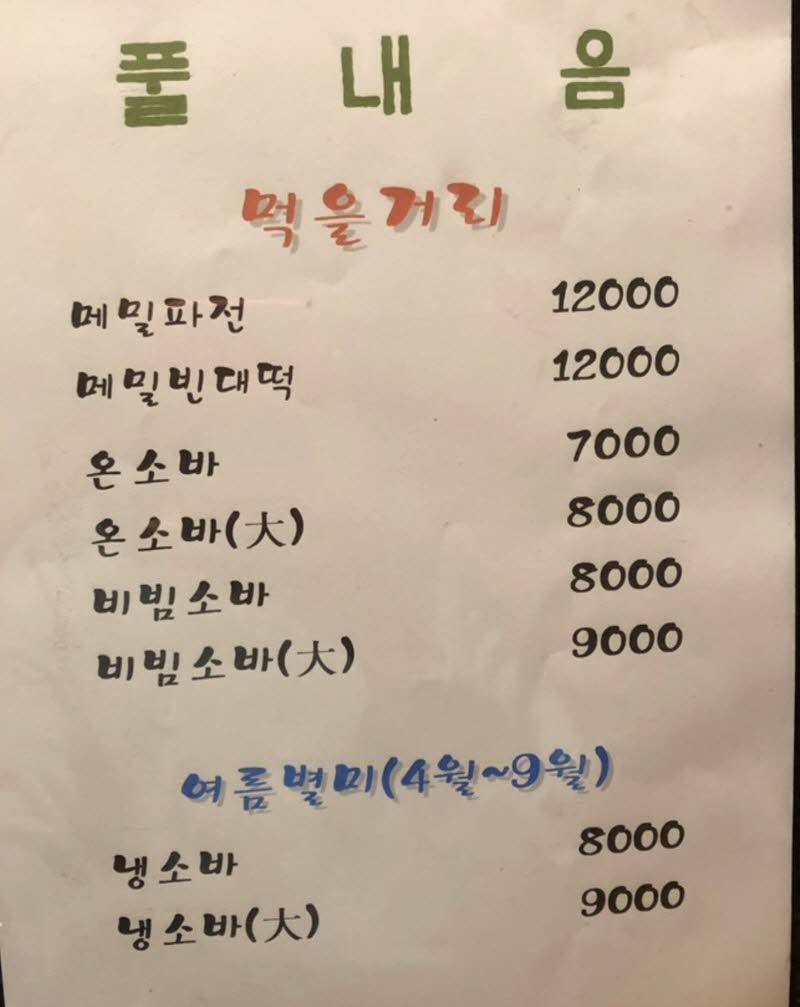 풀 내 음
먹을거리
메밀파전 12000
메밀빈대떡 12000
온소바 7000
온소바(大) 8000
비빔소바 8000
비빔소바(大) 9000
여름별미(4월~9월)
냉소바 8000
냉소바(大) 9000